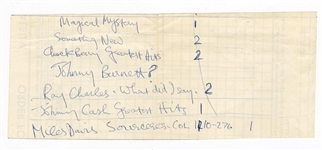 Magical Mystery 1
Something New 2
Chuck Berry Greatest Hits 2
Johnny Burnett?
Ray Charles - What did I say. 2
Johnny Cash Greatest Hits 1
Miles Davis Sourceses - Col 1